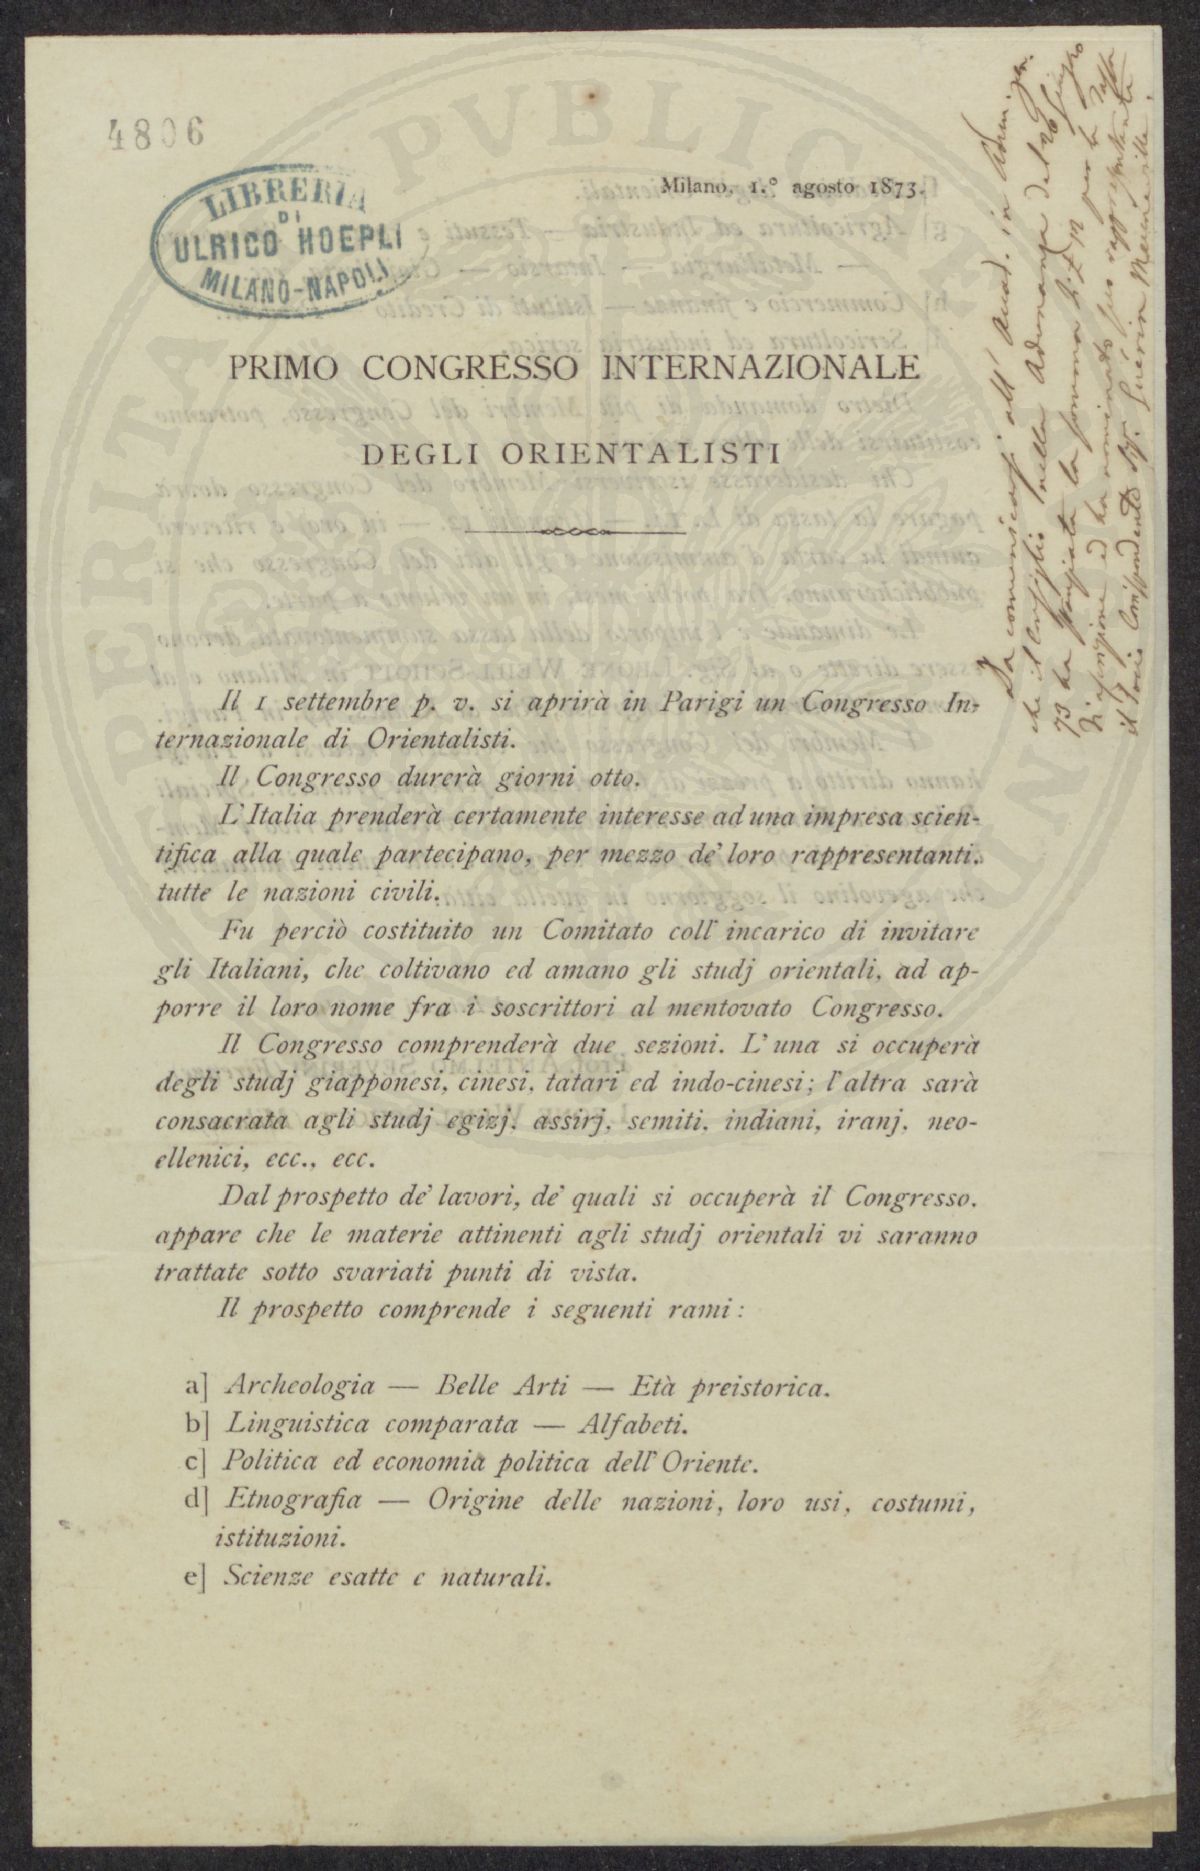 4806
LIBRERIA
DI
ULRICO HOEPLI
MILANO-NAPOLI
Milano, 1.° agosto 1873.
PRIMO CONGRESSO INTERNAZIONALE
DEGLI ORIENTALISTI
Il 1 settembre p. v. si aprirà in Parigi un Congresso In-
ternazionale di Orientalisti.
Il Congresso durerà giorni otto.
L'Italia prenderà certamente interesse ad una impresa scien-
tifica alla quale partecipano, per mezzo de' loro rappresentanti,
tutte le nazioni civili.
Fu perciò costituito un Comitato coll' incarico di invitare
gli Italiani, che coltivano ed amano gli studj orientali, ad ap-
porre il loro nome fra i soscrittori al mentovato Congresso.
Il Congresso comprenderà due sezioni. L' una si occuperà
degli studj giapponesi, cinesi, tatari ed indo-cinesi; l'altra sarà
consacrata agli studj egizj, assirj, semiti, indiani, iranj, neo-
ellenici, ecc., ecc.
Dal prospetto de' lavori, de' quali si occuperà il Congresso,
appare che le materie attinenti agli studj orientali vi saranno
trattate sotto svariati punti di vista.
Il prospetto comprende i seguenti rami:
a] Archeologia — Belle Arti — Età preistorica.
b] Linguistica comparata — Alfabeti.
c] Politica ed economia politica dell' Oriente.
d] Etnografia — Origine delle nazioni, loro usi, costumi,
istituzioni.
e] Scienze esatte e naturali.
all' Accad. in
che il Consiglio nella Adunanza del 26 Giugno
73 ha la somma di £ 12 per la Tassa
ed ha nominato suo rappresentante
il Socio Corrispondente Sig. Guerin